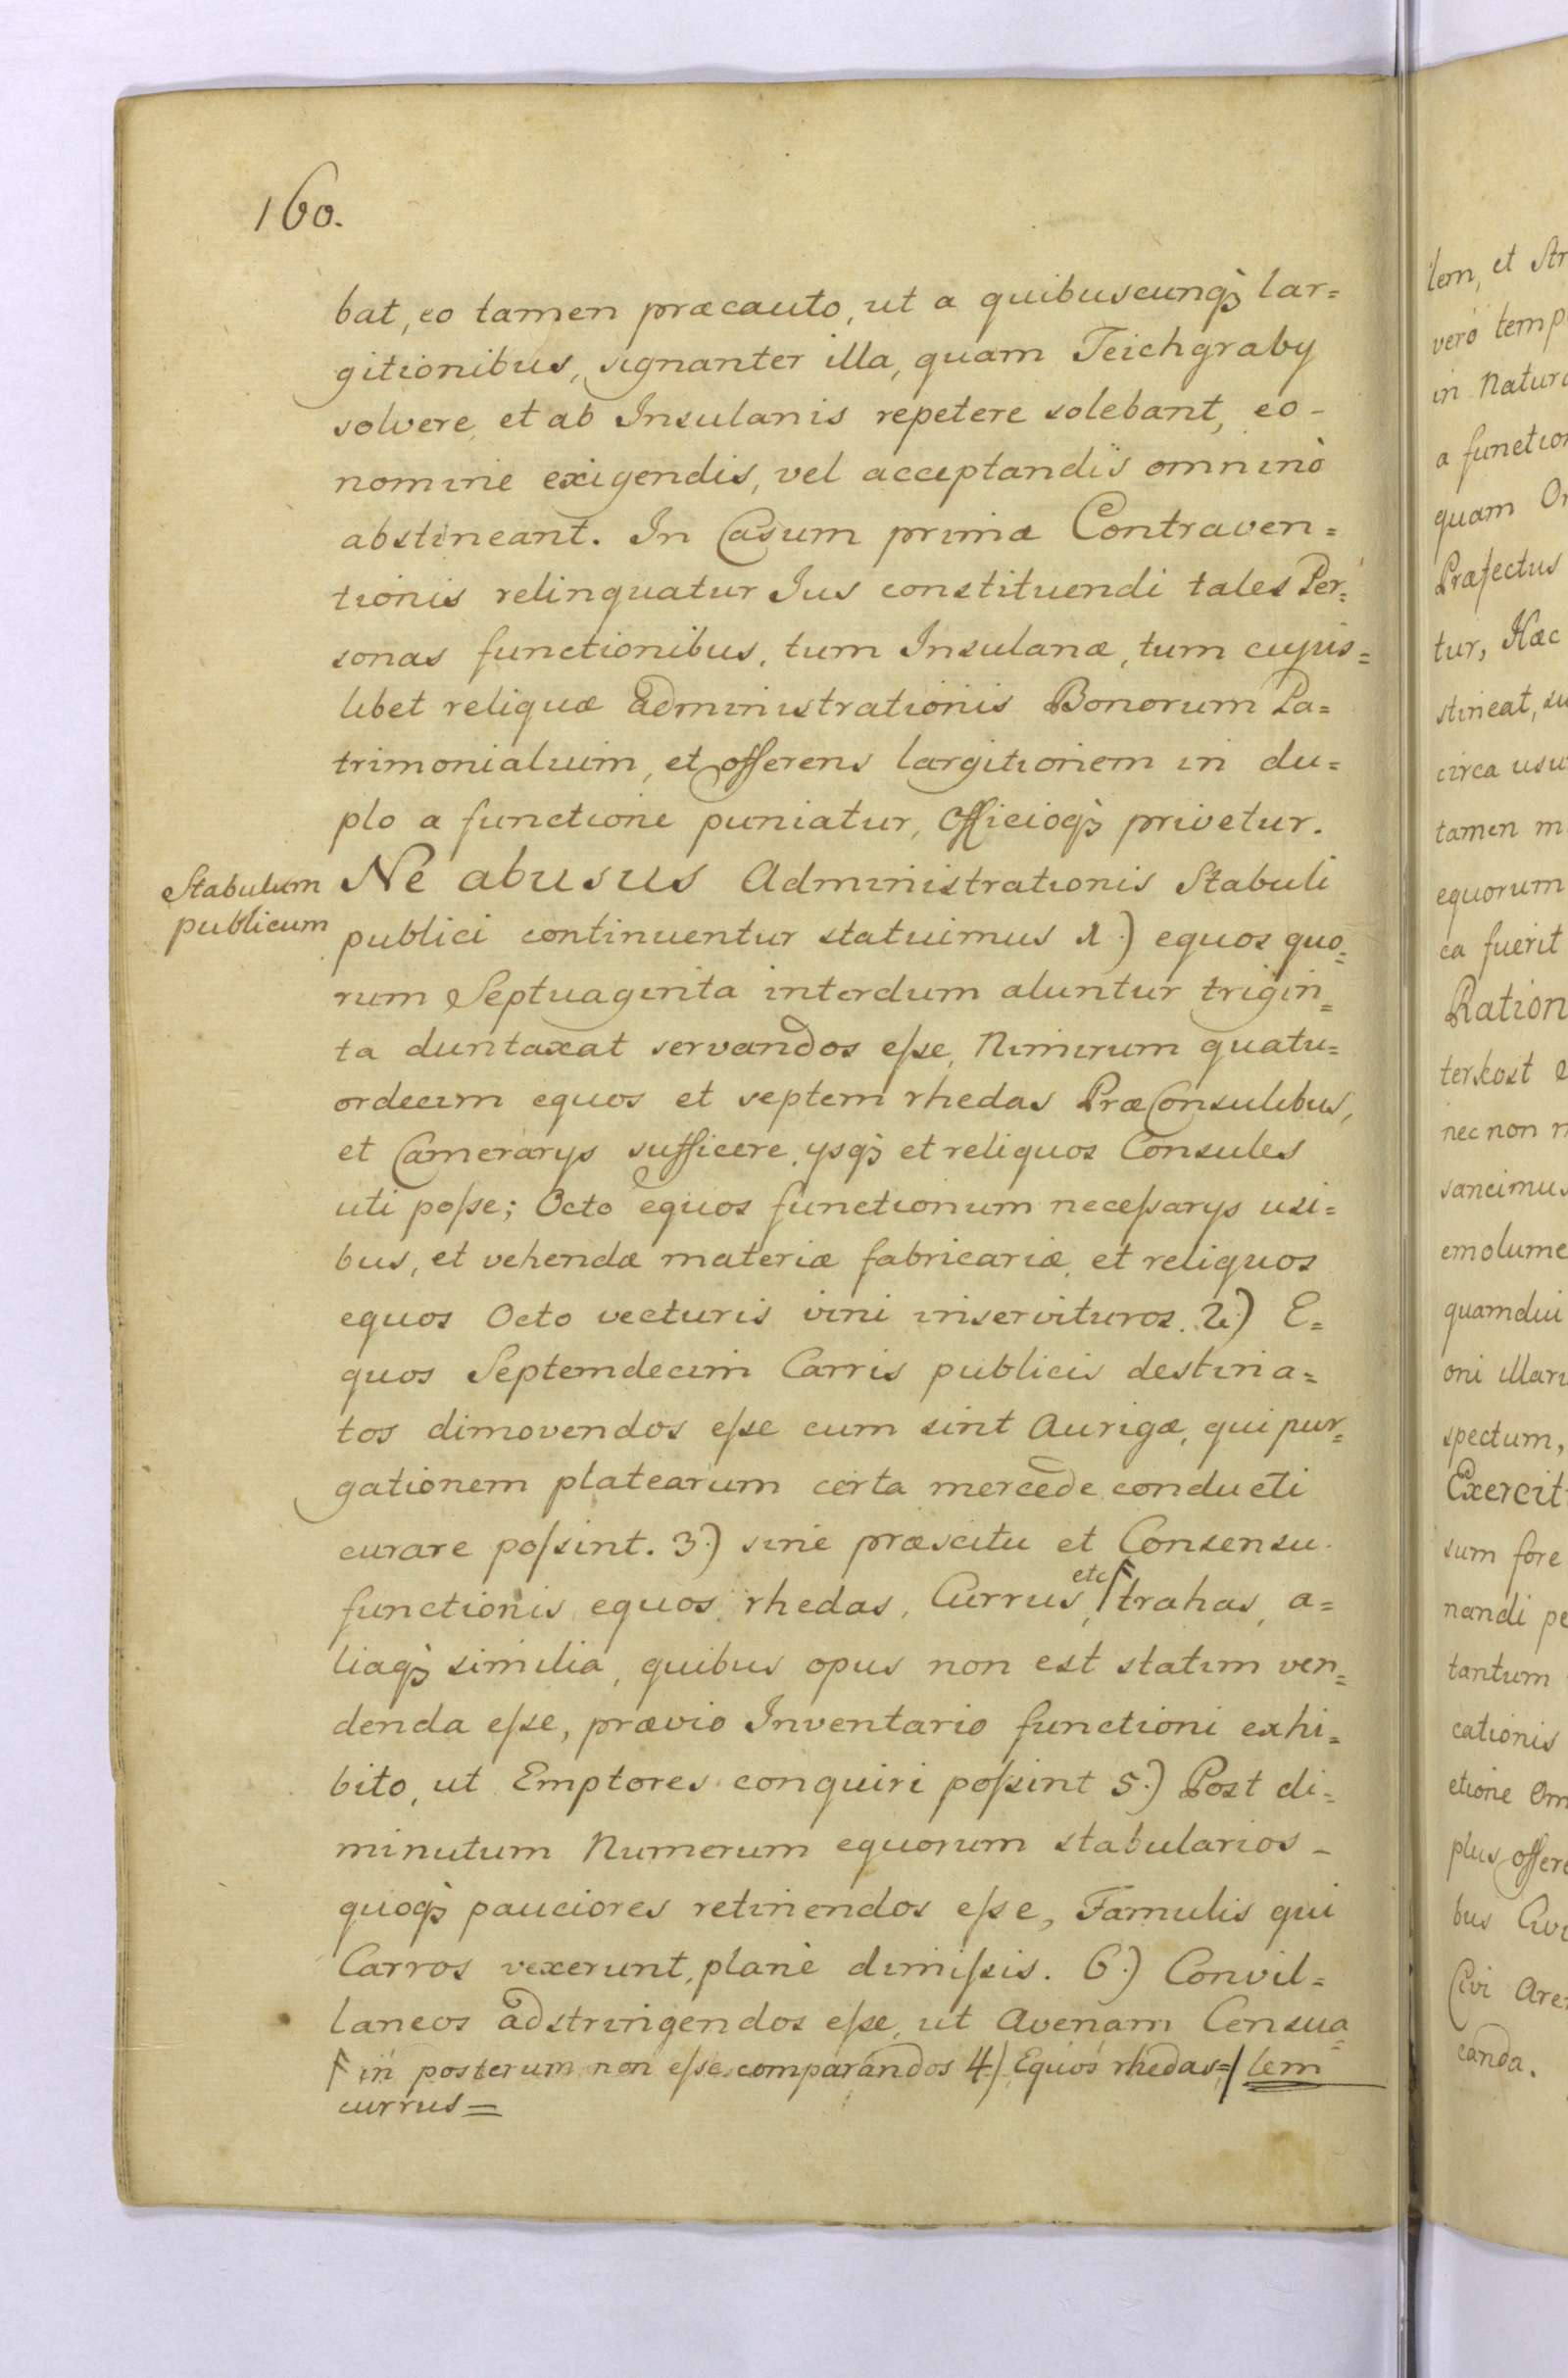 160.
bat, eo tamen præcauto, ut a quibuscunq̀ꝫ lar=
gitionibus, signanter illa, quam Teichgraby
solvere et ab Insulanis repetere solebant, eo-
nomine exigendis, vel acceptandis omninò
abstineant. In Casum primæ Contraven=
tionis relinquatur Jus constituendi tales Per=
sonas functionibus, tum Insulanæ, tum cujus=
libet reliquæ administrationis Bonorum Pa=
trimonialium, et offerens largitionem in du=
plo a functione puniatur, Officioq̀ꝫ privetur.
Stabulum
publicum
Ne abusus Administrationis Stabuli
publici continuentur statuimus 1.) equos quo=
rum Septuaginta interdum aluntur trigin=
ta duntaxat servandos eſse, Nimirum quatu=
ordecim equos et septem rhedas PræConsulibus,
et Camerarys sufficere, ysq̀ꝫ et reliquos Consules
uti poſse; Octo equos functionum neceſsarys usi=
bus, et vehendæ materiæ fabricariæ, et reliquos
equos Octo vecturis vini inservituros. 2.) E=
quos Septemdecim Carris publicis destina=
tos dimovendos eſse cum sint Aurigæ, qui pur=
gationem platearum certa mercede conducti
curare poſsint. 3.) sine præscitu et Consensu
functionis equos, rhedas, Currus, etc F trahas, a=
liaq̀ꝫ similia, quibus opus non est statim ven=
denda eſse, prævio Inventario functioni exhi=
bito, ut Emptores conquiri poſsint 5.) Post di=
minutum Numerum equorum stabularios -
quoq̀ꝫ pauciores retinendos eſse, Famulis qui
Carros vexerunt, planè dimiſsis. 6.) Convil=
laneos adstringendos eſse, ut Avenam Censua=
F in posterum non eſse comparandos 4.) Equos rhedas=/ lem
currus=
lem, et Str
verò temp
in Natura
a function
quam Or
Præfectus
tur, Hæc
stineat, su
circa usu
tamen m
equorum
ca fuerit
Ration
terkost e
nec non n
sancimus
emolume
quamdiu
oni illaru
spectum,
Exercit
sum fore
nandi pe
tantum
cationis
ctione Om
plus offere
bus Civi
Civi Are
canda.